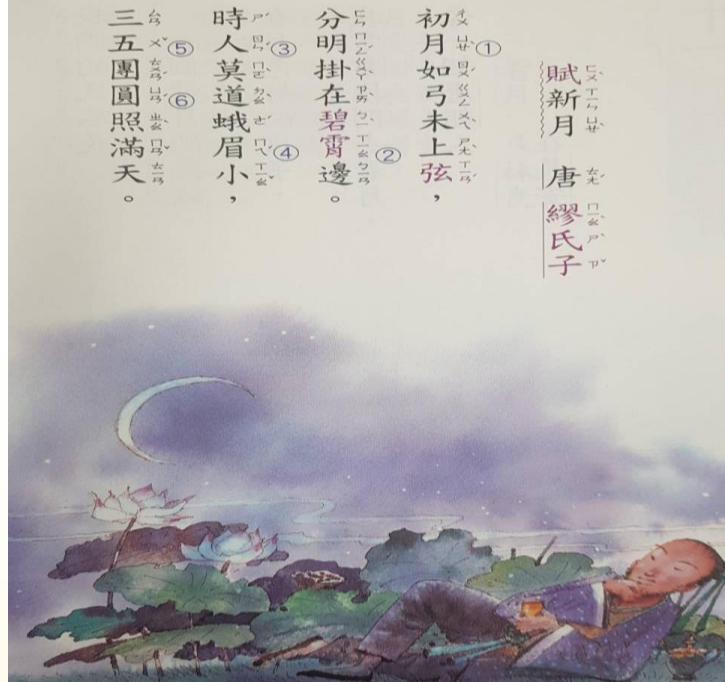 賦新月 唐 繆氏子
初月如弓未上弦，①
分明掛在碧霄邊。②
時人莫道蛾眉小，③④
三五團圓照滿天。⑤⑥